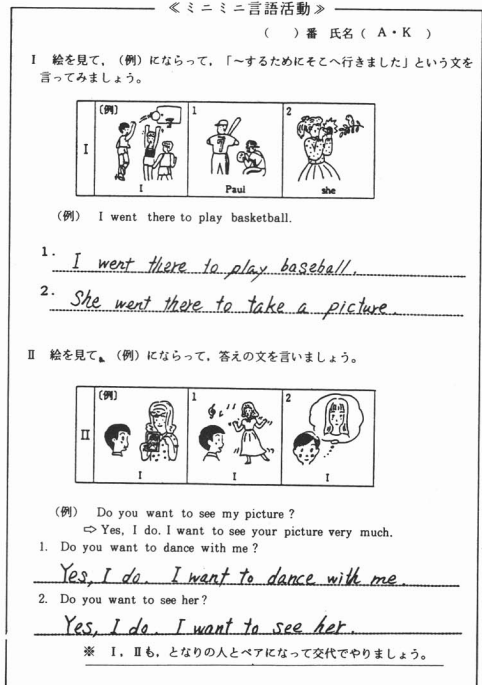 ≪ミニミニ言語活動≫
（　　）番　氏名（　A・K　）
Ⅰ　絵を見て，（例）にならって，「〜するためにそこへ行きました」という文を
言ってみましょう。
〔例〕　1　2
Ⅰ
I　Paul　she
（例）　I went there to play basketball.
1. I went there to play baseball.
2. She went there to take a picture.
Ⅱ　絵を見て、（例）にならって，答えの文を言いましょう。
〔例〕　1　2
Ⅱ
I　I　I
（例）　Do you want to see my picture?
⇨ Yes, I do. I want to see your picture very much.
1. Do you want to dance with me?
Yes, I do. I want to dance with me.
2. Do you want to see her?
Yes, I do. I want to see her.
※　Ⅰ，Ⅱも，となりの人とペアになって交代でやりましょう。